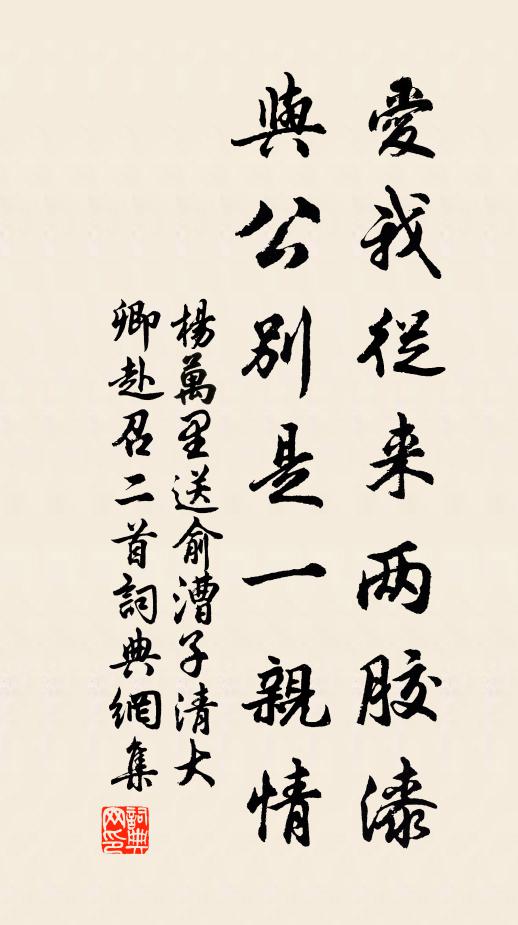 愛我從来两胶漆
與公別是一親情
楊萬里送俞漕子清大
卿赴召二首詞典網集
詞典網印